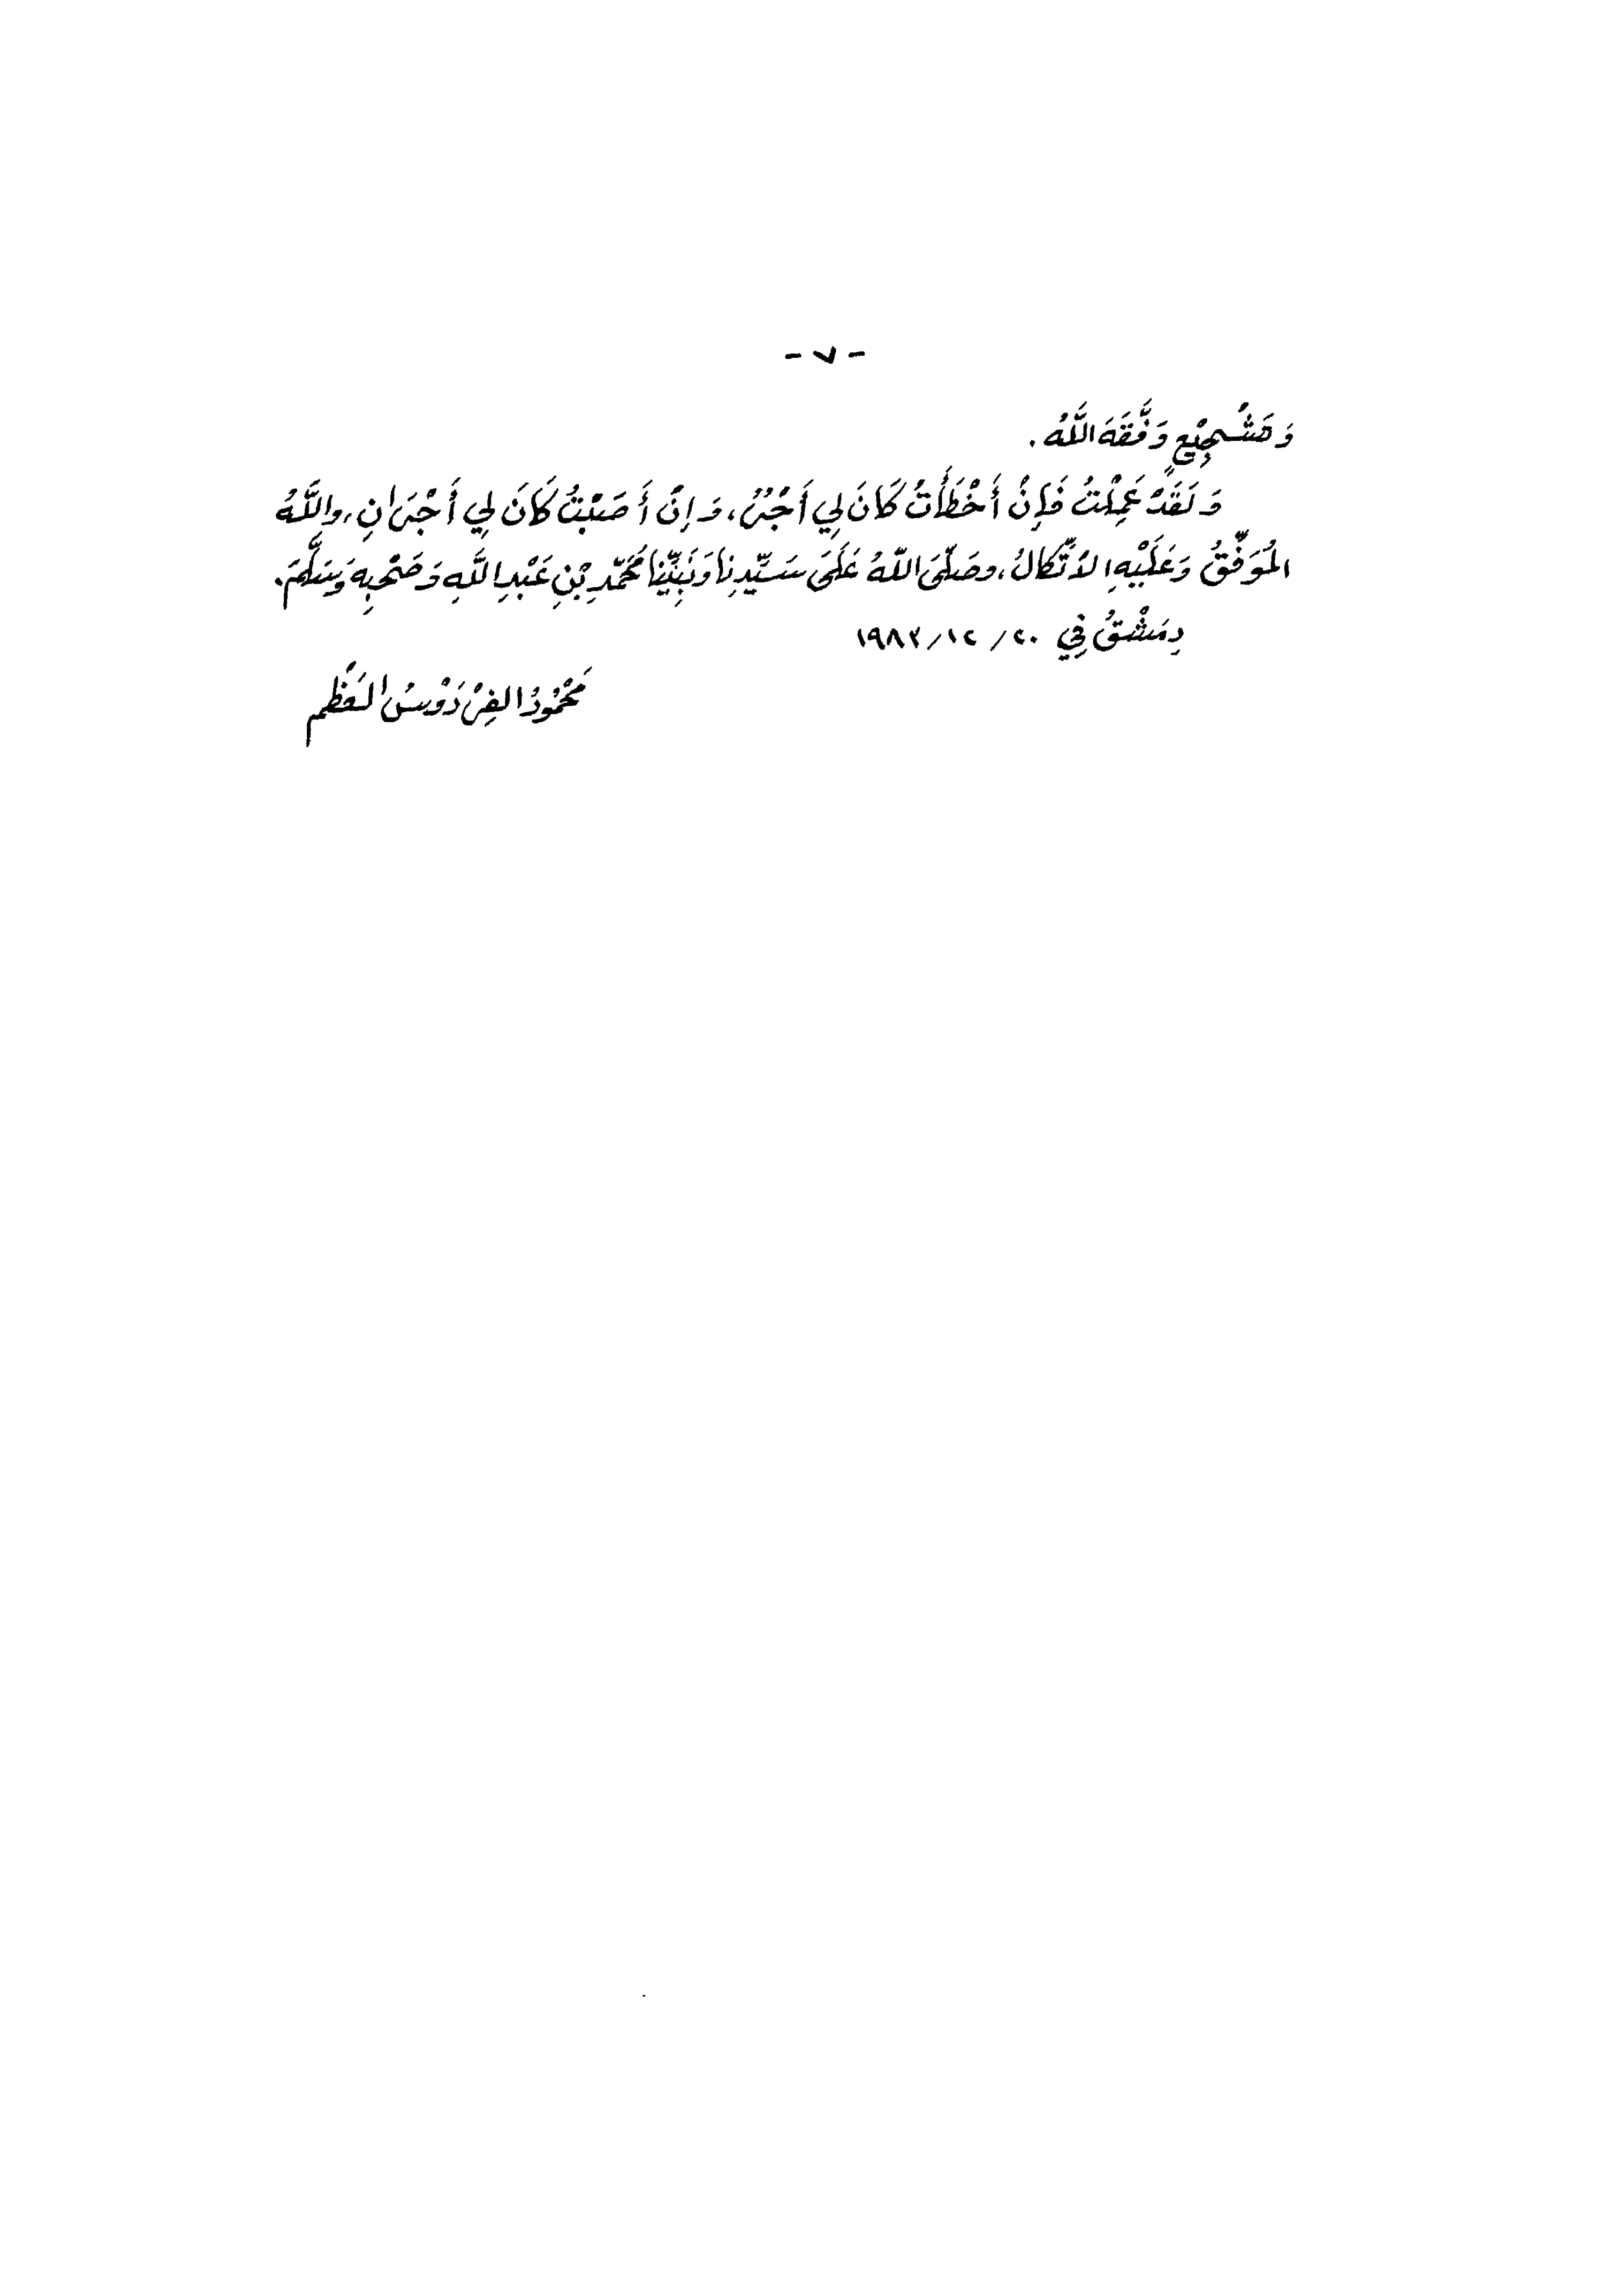 - ٧ -
وَتَشْجِيْعٍ وَفَّقَهَ اللَّهُ .
وَلَقَدْ عَمِلْتُ فَإِنْ أَخْطَأْتُ كَانَ لِي أَجْرٌ، وَإِنْ أَصَبْتُ كَانَ لِي أَجْرَانِ، واللَّهُ
المُوَفِّقُ وَعَلَيْهِ الاتِّكالُ، وصَلَّىَ اللّهُ عَلَىَ سَيِّدِنا وَنَبِيِّنا مُحَمَّدِ بْنِ عَبْدِ اللَّهِ وَصَحْبِهِ وَسَلَّمَ.
دِمَشْقُ فِي ٢٠ / ١٢ / ١٩٨٢
مَحْمُودُ الفِرْدَوْسُ العَظْم